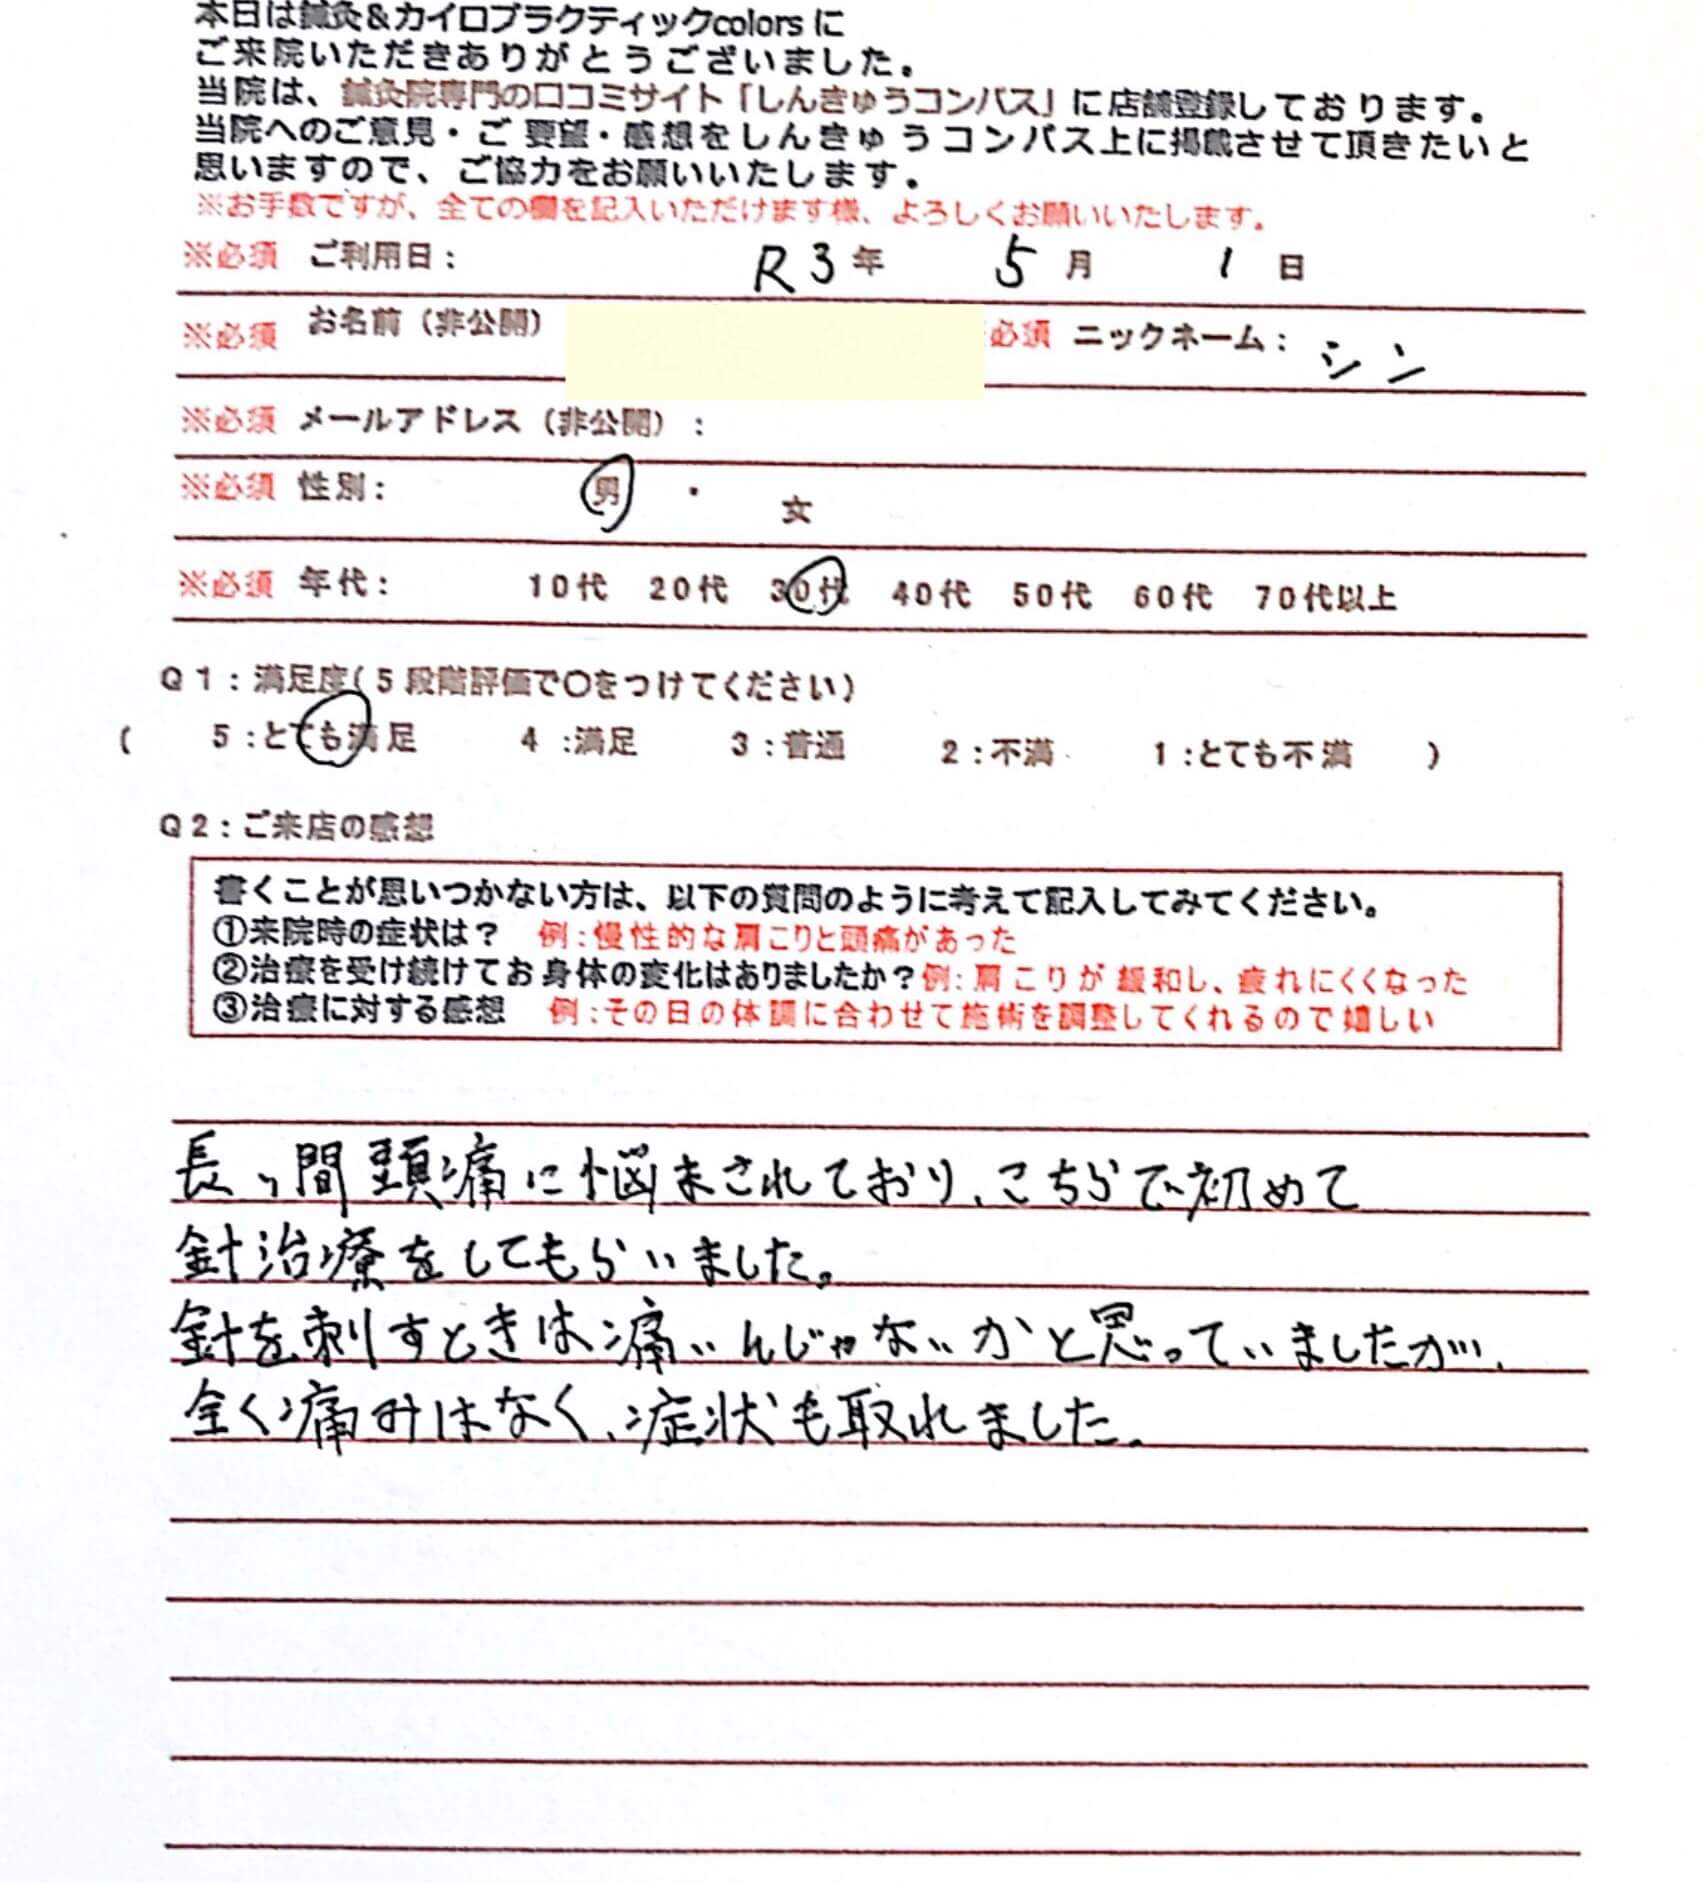 本日は鍼灸&カイロプラクティックcolorsに
ご来院いただきありがとうございました。
当院は、鍼灸院専門の口コミサイト「しんきゅうコンパス」に店舗登録しております。
当院へのご意見・ご要望・感想をしんきゅうコンパス上に掲載させて頂きたいと
思いますので、ご協力をお願いいたします。
※お手数ですが、全ての欄を記入いただけます様、よろしくお願いいたします。
※必須 ご利用日: R3年 5月 1日
※必須 お名前(非公開) 必須 ニックネーム: シン
※必須 メールアドレス(非公開):
※必須 性別: 男 ・ 女
※必須 年代: 10代 20代 30代 40代 50代 60代 70代以上
Q1:満足度(5段階評価で〇をつけてください)
( 5:とても満足 4:満足 3:普通 2:不満 1:とても不満 )
Q2:ご来店の感想
書くことが思いつかない方は、以下の質問のように考えて記入してみてください。
①来院時の症状は? 例:慢性的な肩こりと頭痛があった
②治療を受け続けてお身体の変化はありましたか?例:肩こりが緩和し、疲れにくくなった
③治療に対する感想 例:その日の体調に合わせて施術を調整してくれるので嬉しい
長い間頭痛に悩まされており、こちらで初めて
針治療をしてもらいました。
針を刺すときは痛いんじゃないかと思っていましたが、
全く痛みはなく、症状も取れました。